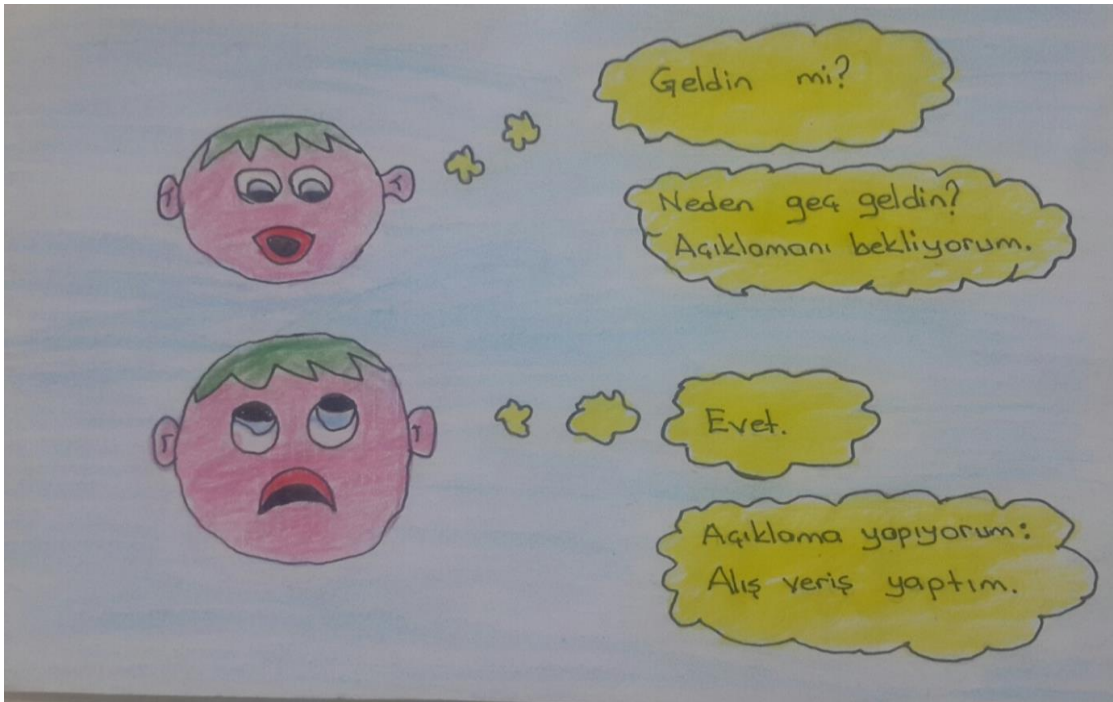 Geldin mi?
Neden geç geldin?
Açıklamanı bekliyorum.
Evet.
Açıklama yapıyorum:
Alış veriş yaptım.